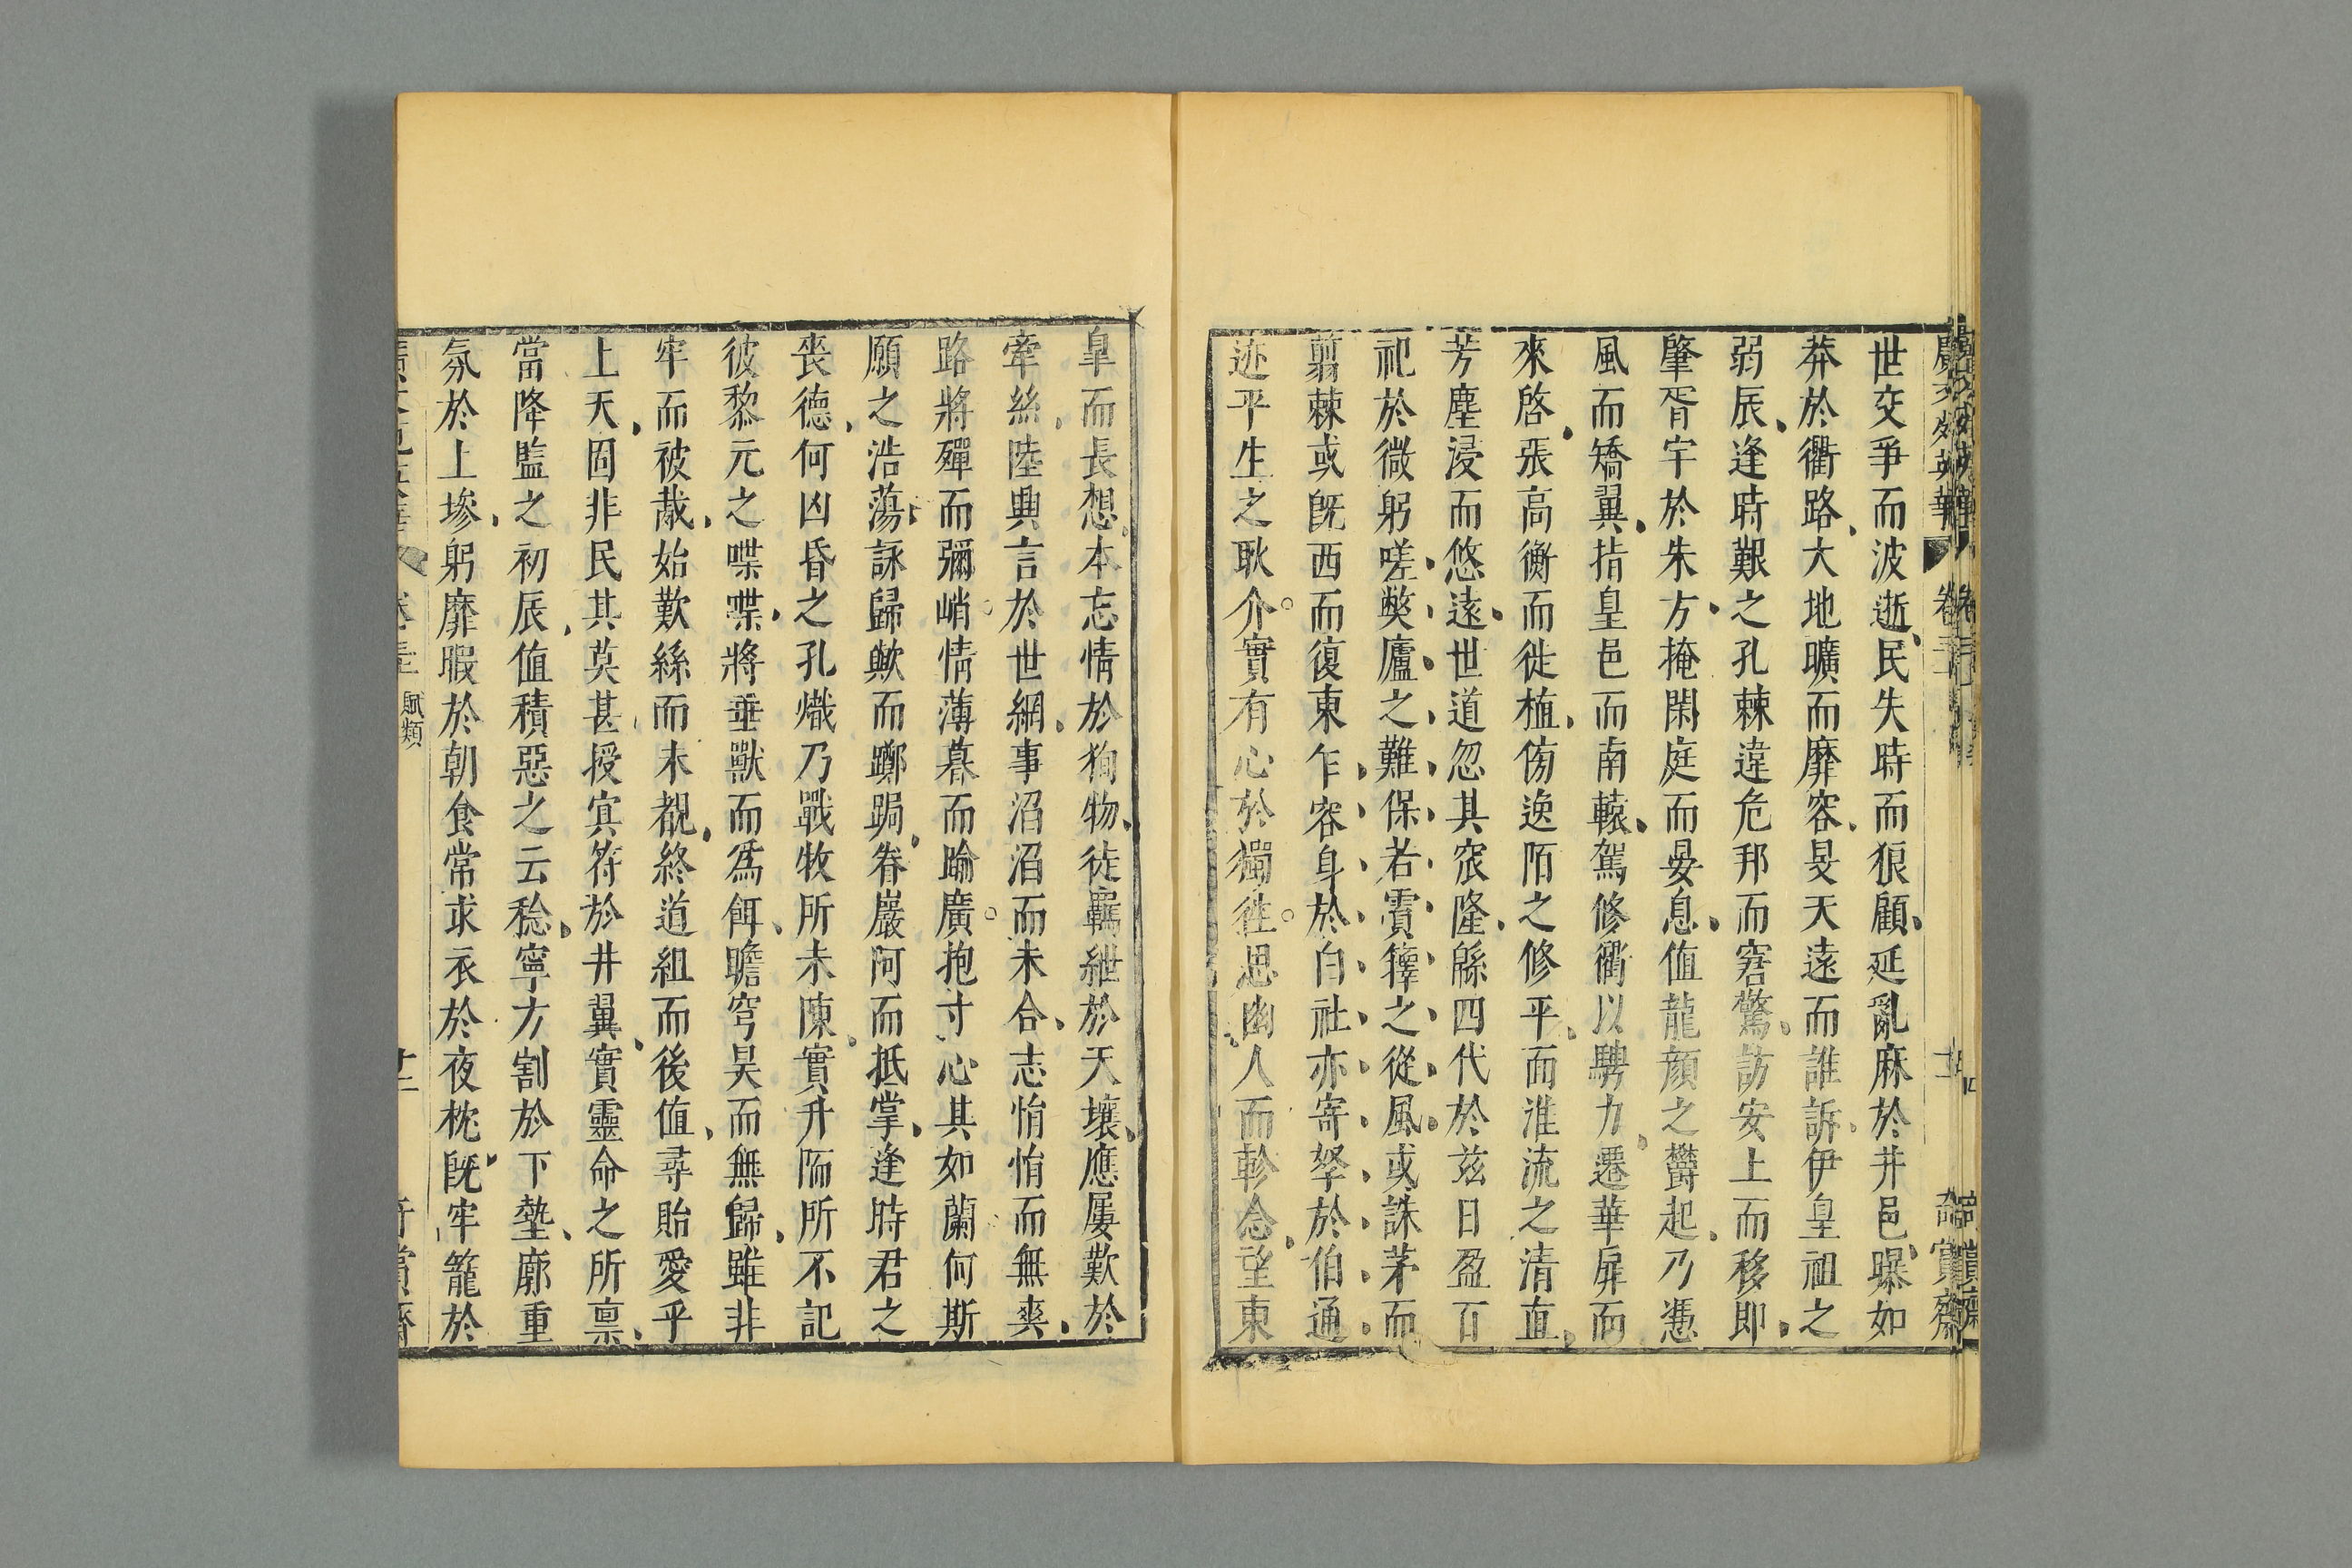 世交爭而波逝民失時而狼顧延亂麻於井邑曝如
莽於衢路大地曠而靡容旻天遠而誰訴伊皇祖之
弱辰逢時艱之孔棘違危邦而窘驚訪安土而移即
肇胥宇於朱方掩閑庭而晏息值龍顏之鬱起乃憑
風而矯翼指皇邑而南轅駕修衢以騁力遷華扉而
來啓張高衡而徙植傍逸陌之修平面淮流之清直
芳塵浸而悠遠世道忽其窊隆緜四代於兹日盈百
祀於微躬嗟弊廬之難保若霣籜之從風或誅茅而
翦棘或既西而復東乍容身於白社亦寄孥於伯通
迹平生之耿介實有心於獨徃思幽人而軫念望東
皐而長想本忘情於狥物徒羈紲於天壤應屢歎於
牽絲陸興言於世網事滔滔而未合志悁悁而無爽
路將殫而彌峭情薄暮而踰廣抱寸心其如蘭何斯
願之浩蕩詠歸歟而躑跼眷巖阿而抵掌逢時君之
喪德何凶昏之孔熾乃戰牧所未陳實升陑所不記
彼黎元之喋喋將垂獸而爲餌瞻穹昊而無歸雖非
牢而被胾始歎絲而未覩終逌組而後值尋貽愛乎
上天固非民其莫甚授冥符於井翼實靈命之所禀
當降監之初辰值積惡之云稔寧方割於下墊廓重
氛於上墋躬靡暇於朝食常求衣於夜枕既牢籠於
賦類